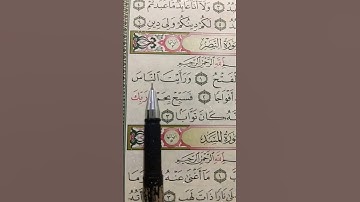 وَلَا أَنَا عَابِدٌ مَّا عَبَدتُّمْ
لَكُمْ دِينُكُمْ وَلِيَ دِينِ
سُورَةُ النَّصْرِ
ٱللَّهِ ٱلرَّحْمَٰنِ ٱلرَّحِيمِ
وَرَأَيْتَ النَّاسَ
أَفْوَاجًا فَسَبِّحْ بِحَمْدِ رَبِّكَ
كَانَ تَوَّابًا
سُورَةُ الْمَسَدِ
ٱللَّهِ ٱلرَّحْمَٰنِ ٱلرَّحِيمِ
مَا أَغْنَىٰ عَنْهُ
نَارًا ذَاتَ لَهَبٍ